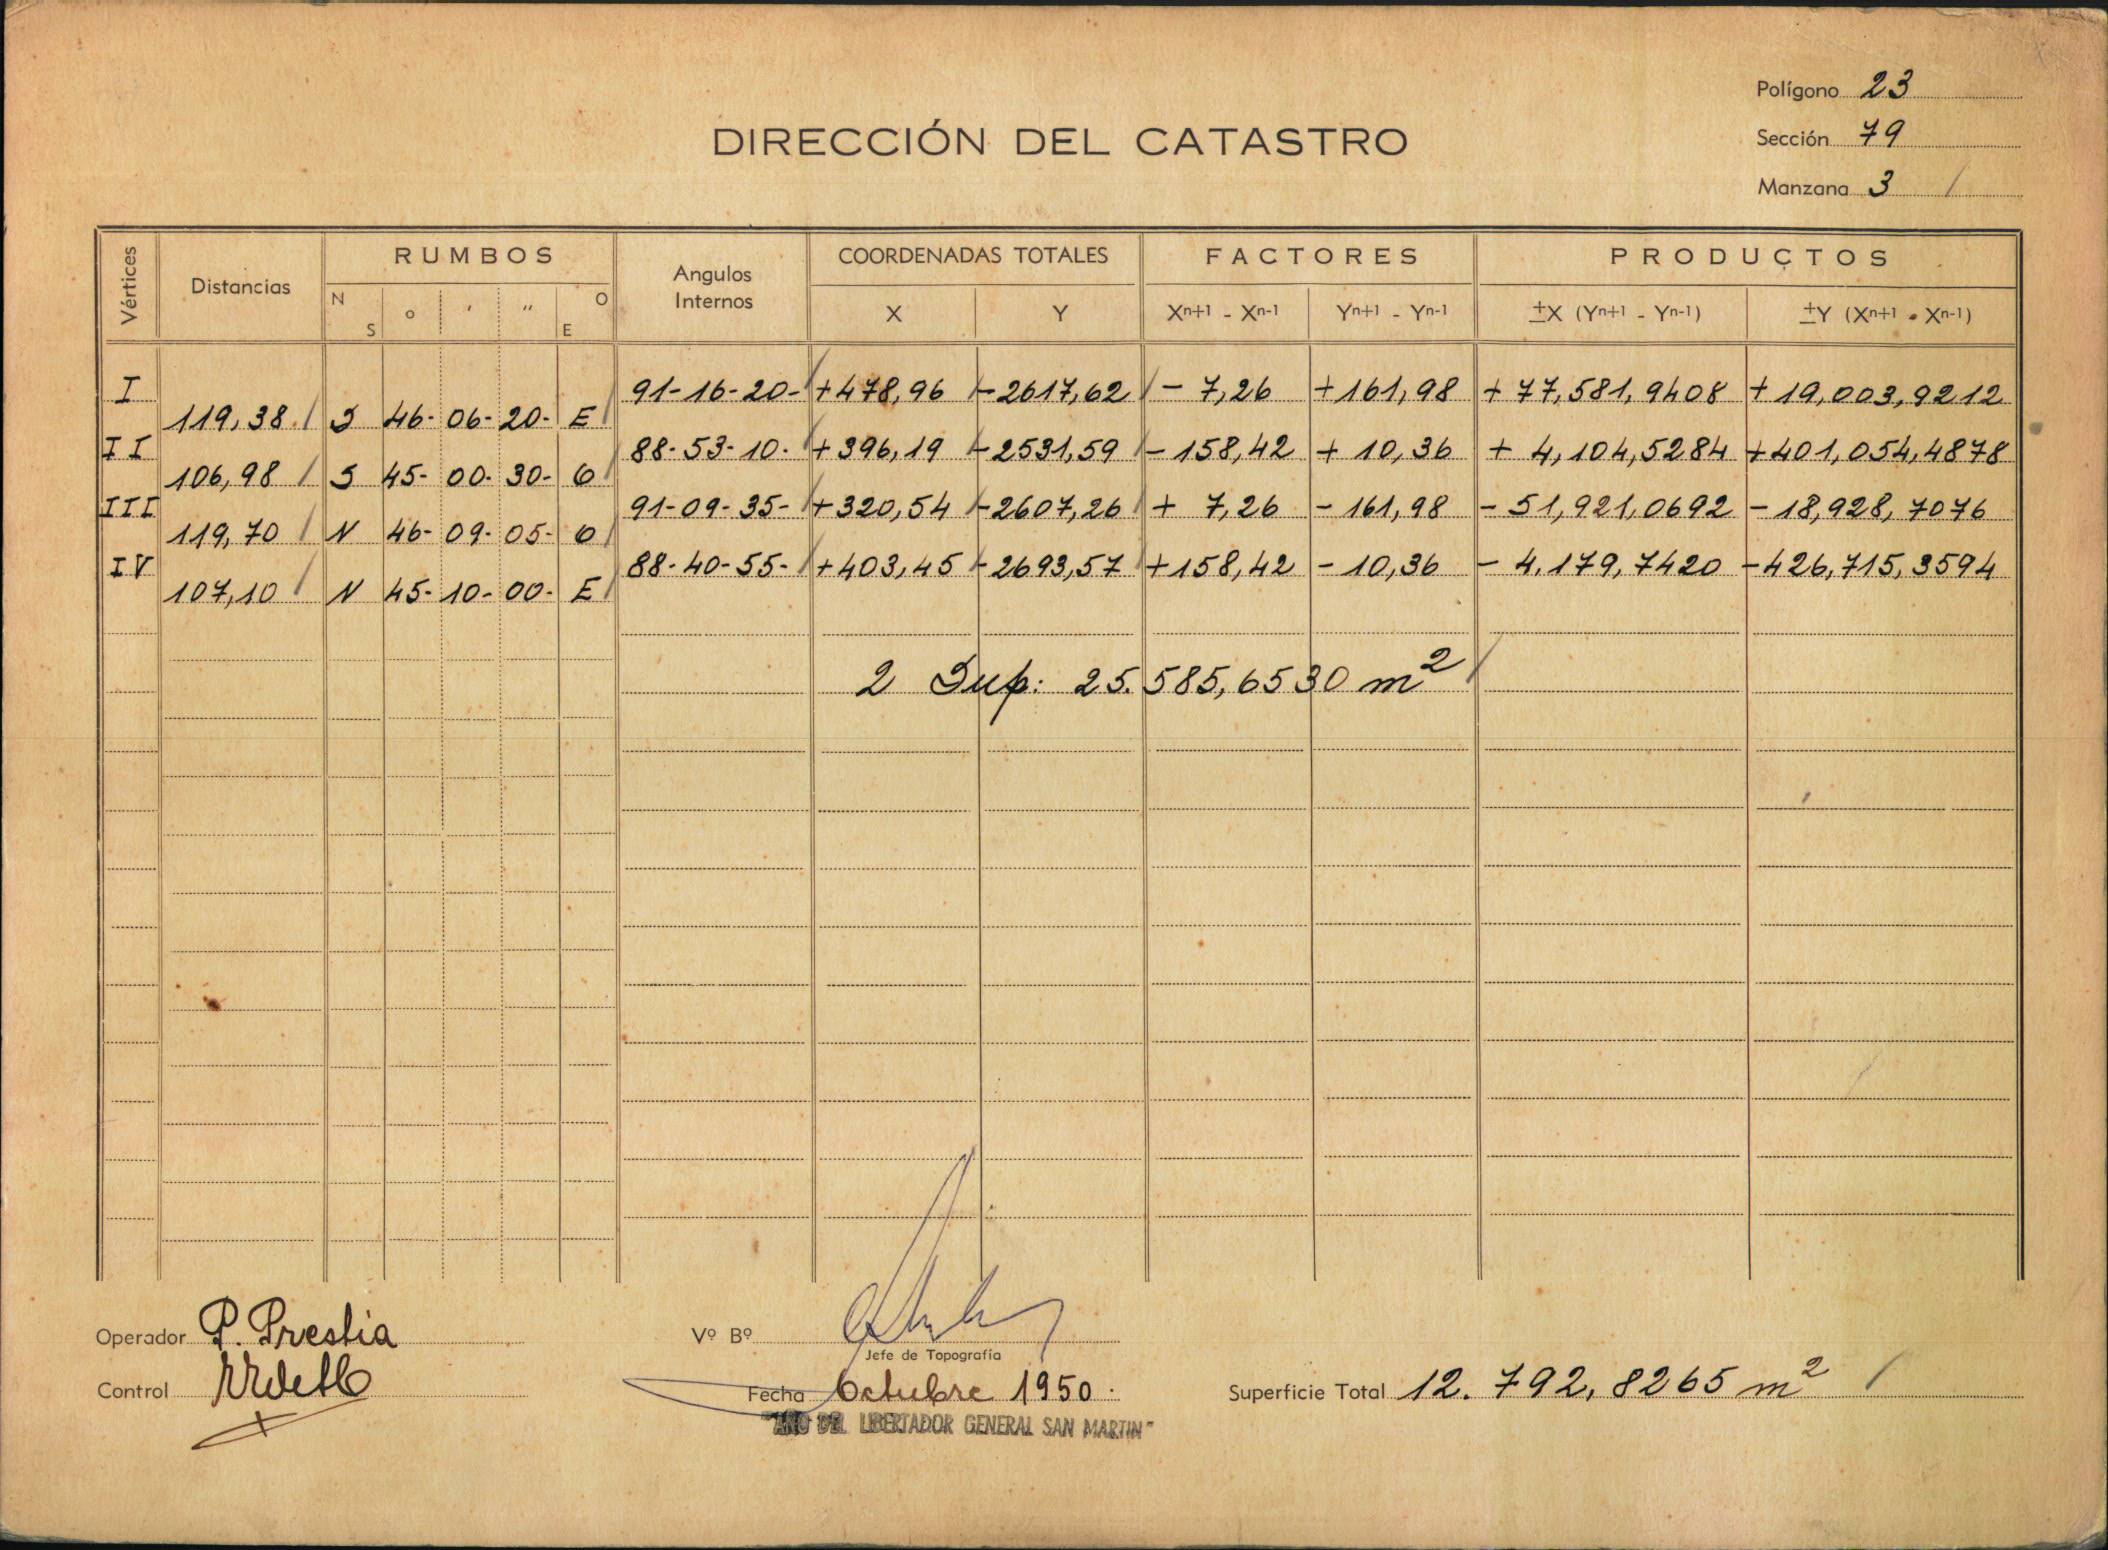 Polígono 23
DIRECCIÓN DEL CATASTRO
Sección 79
Manzana 3 /
Vértices Distancias RUMBOS Angulos Internos COORDENADAS TOTALES FACTORES PRODUCTOS
N S o ' '' O E X Y Xn+1 - Xn-1 Yn+1 - Yn-1 ±X (Yn+1 - Yn-1) ±Y (Xn+1 - Xn-1)
I 91-16-20- +478,96 -2617,62 - 7,26 +161,98 + 77,581,9408 + 19,003,9212
119,38 S 46- 06- 20- E
II 88-53-10- +396,19 -2531,59 -158,42 + 10,36 + 4,104,5284 +401,054,4878
106,98 S 45- 00- 30- O
III 91-09-35- +320,54 -2607,26 + 7,26 - 161,98 - 51,921,0692 - 18,928,7076
119,70 N 46- 09- 05- O
IV 88-40-55- +403,45 -2693,57 +158,42 - 10,36 - 4,179,7420 -426,715,3594
107,10 N 45- 10- 00- E
2 Sup: 25.585,6530 m²
Operador P. Prestia
Vº Bº
Jefe de Topografía
Control
Fecha Octubre 1950.
Superficie Total 12.792,8265 m²
"AÑO DEL LIBERTADOR GENERAL SAN MARTIN"